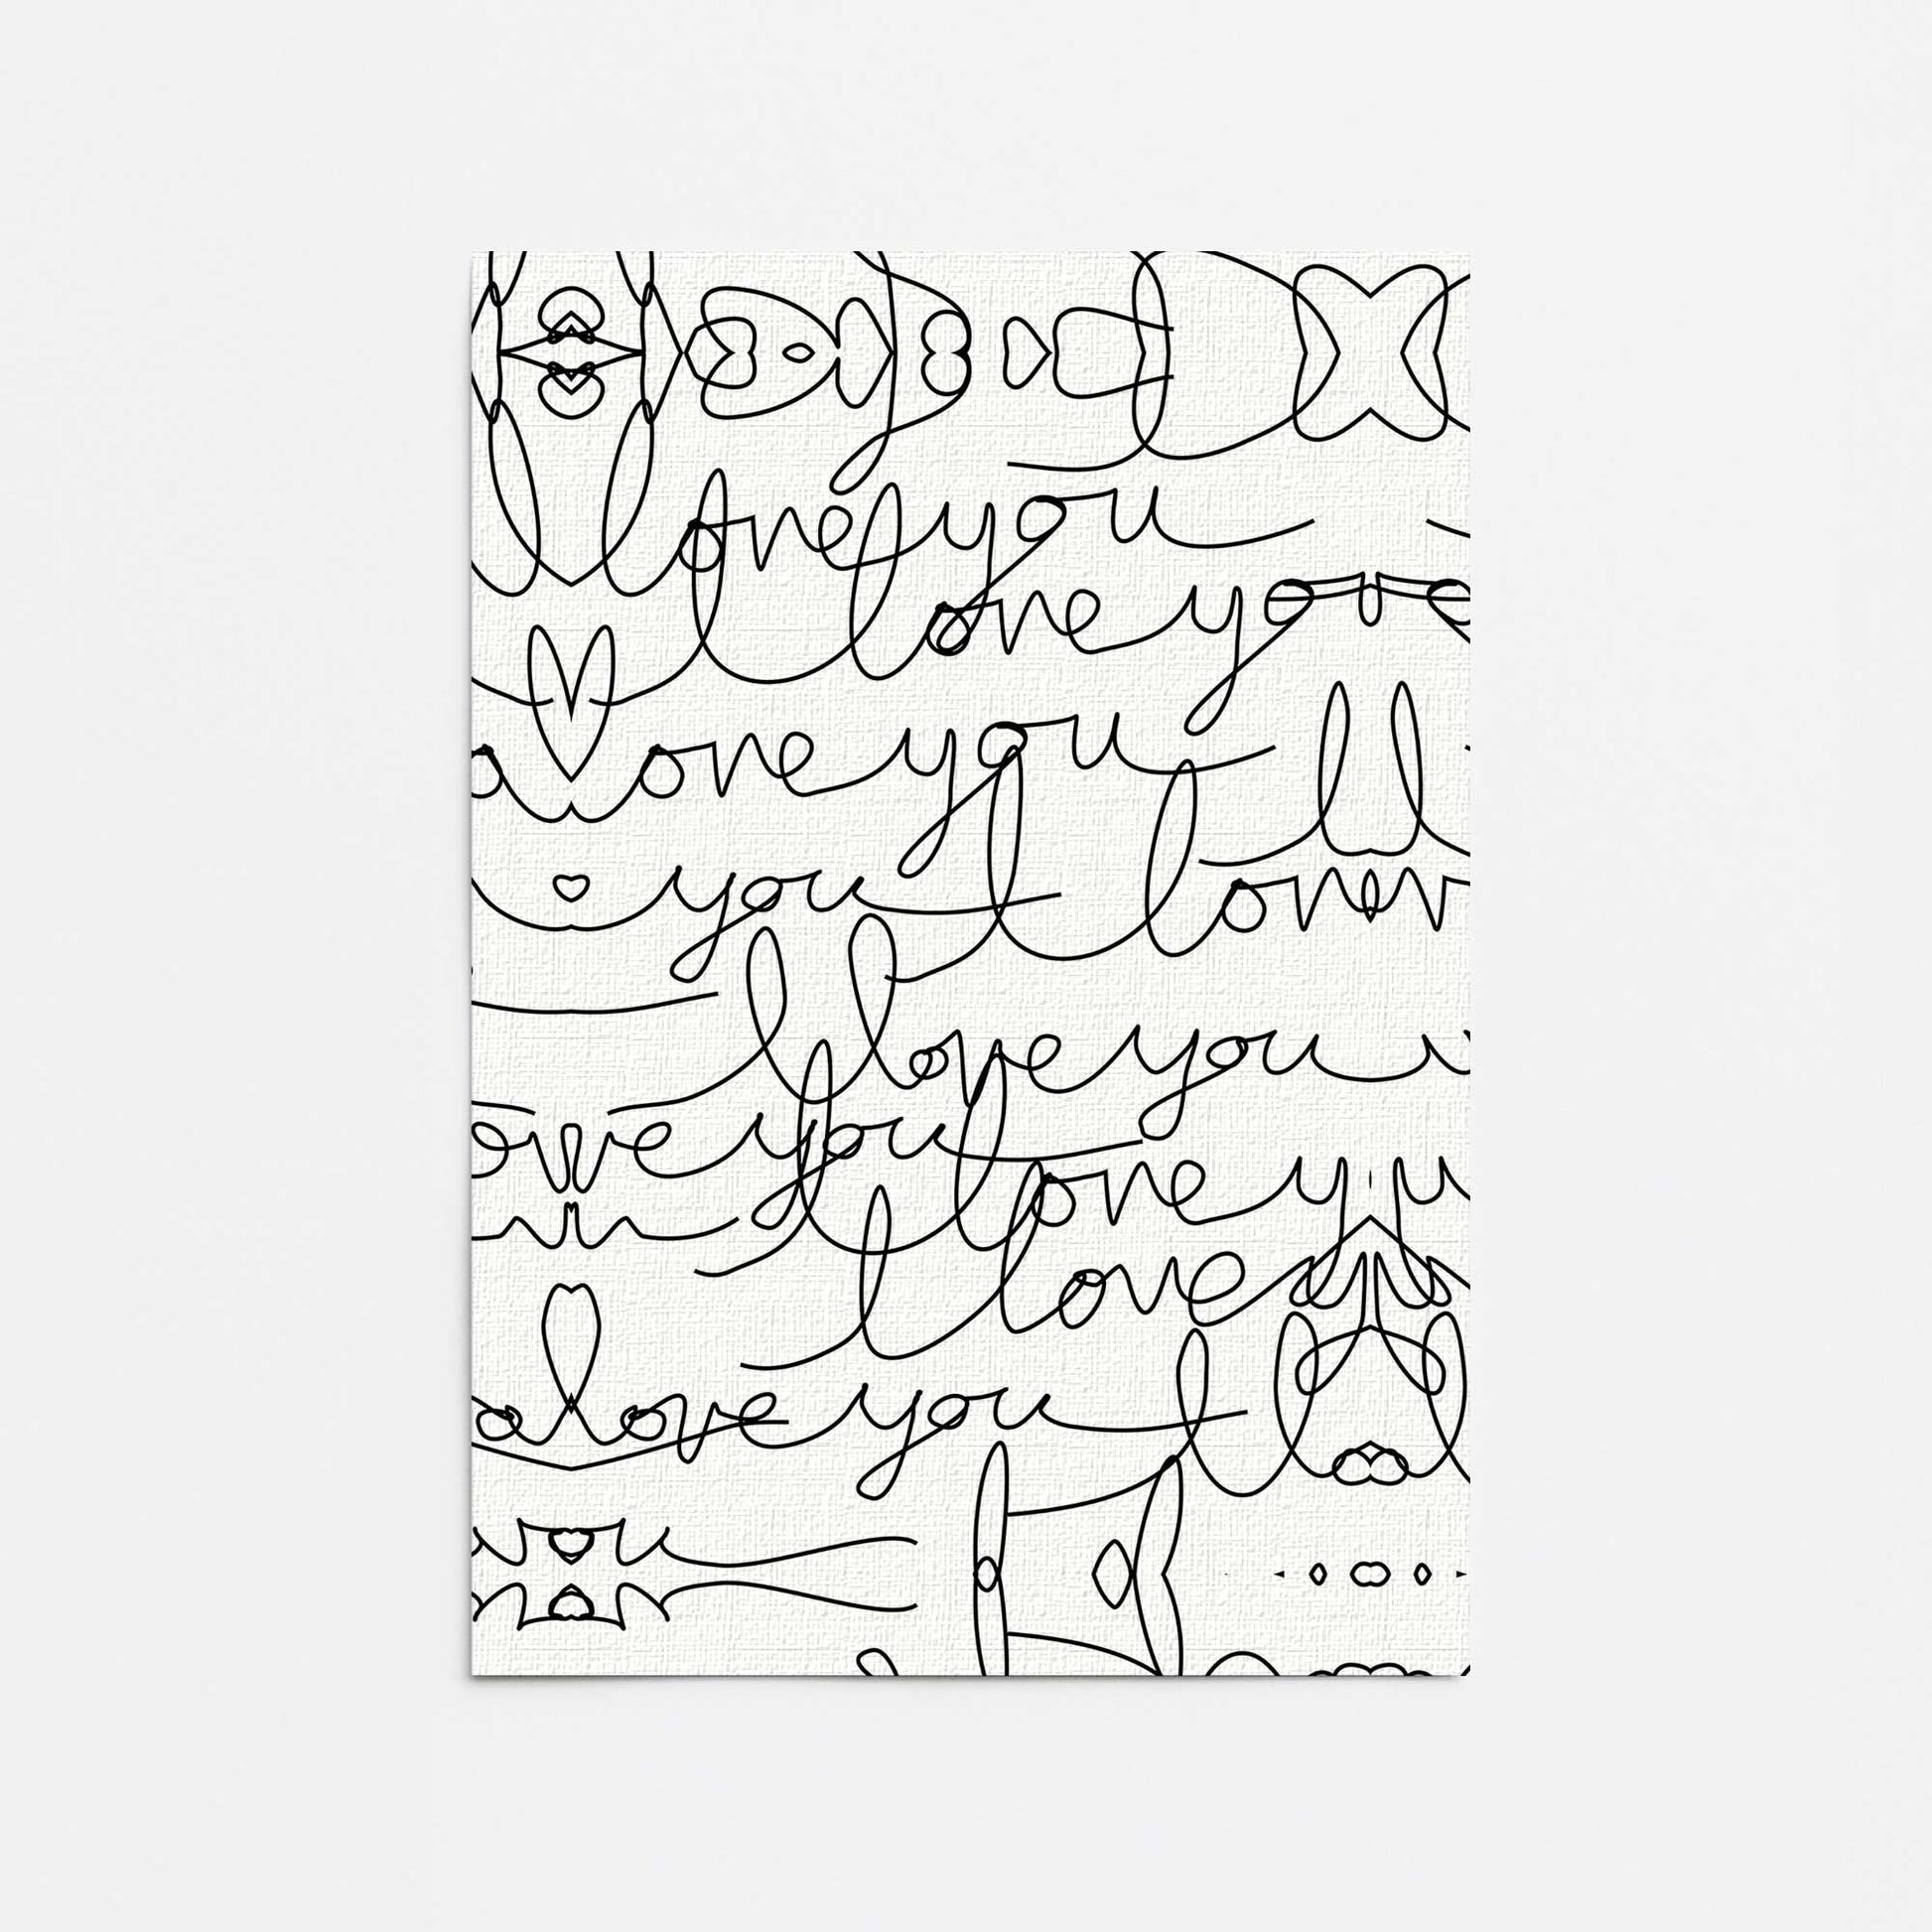 love you
I love y
love you
you I lov
I love you
ove you I love y
I love
love you I